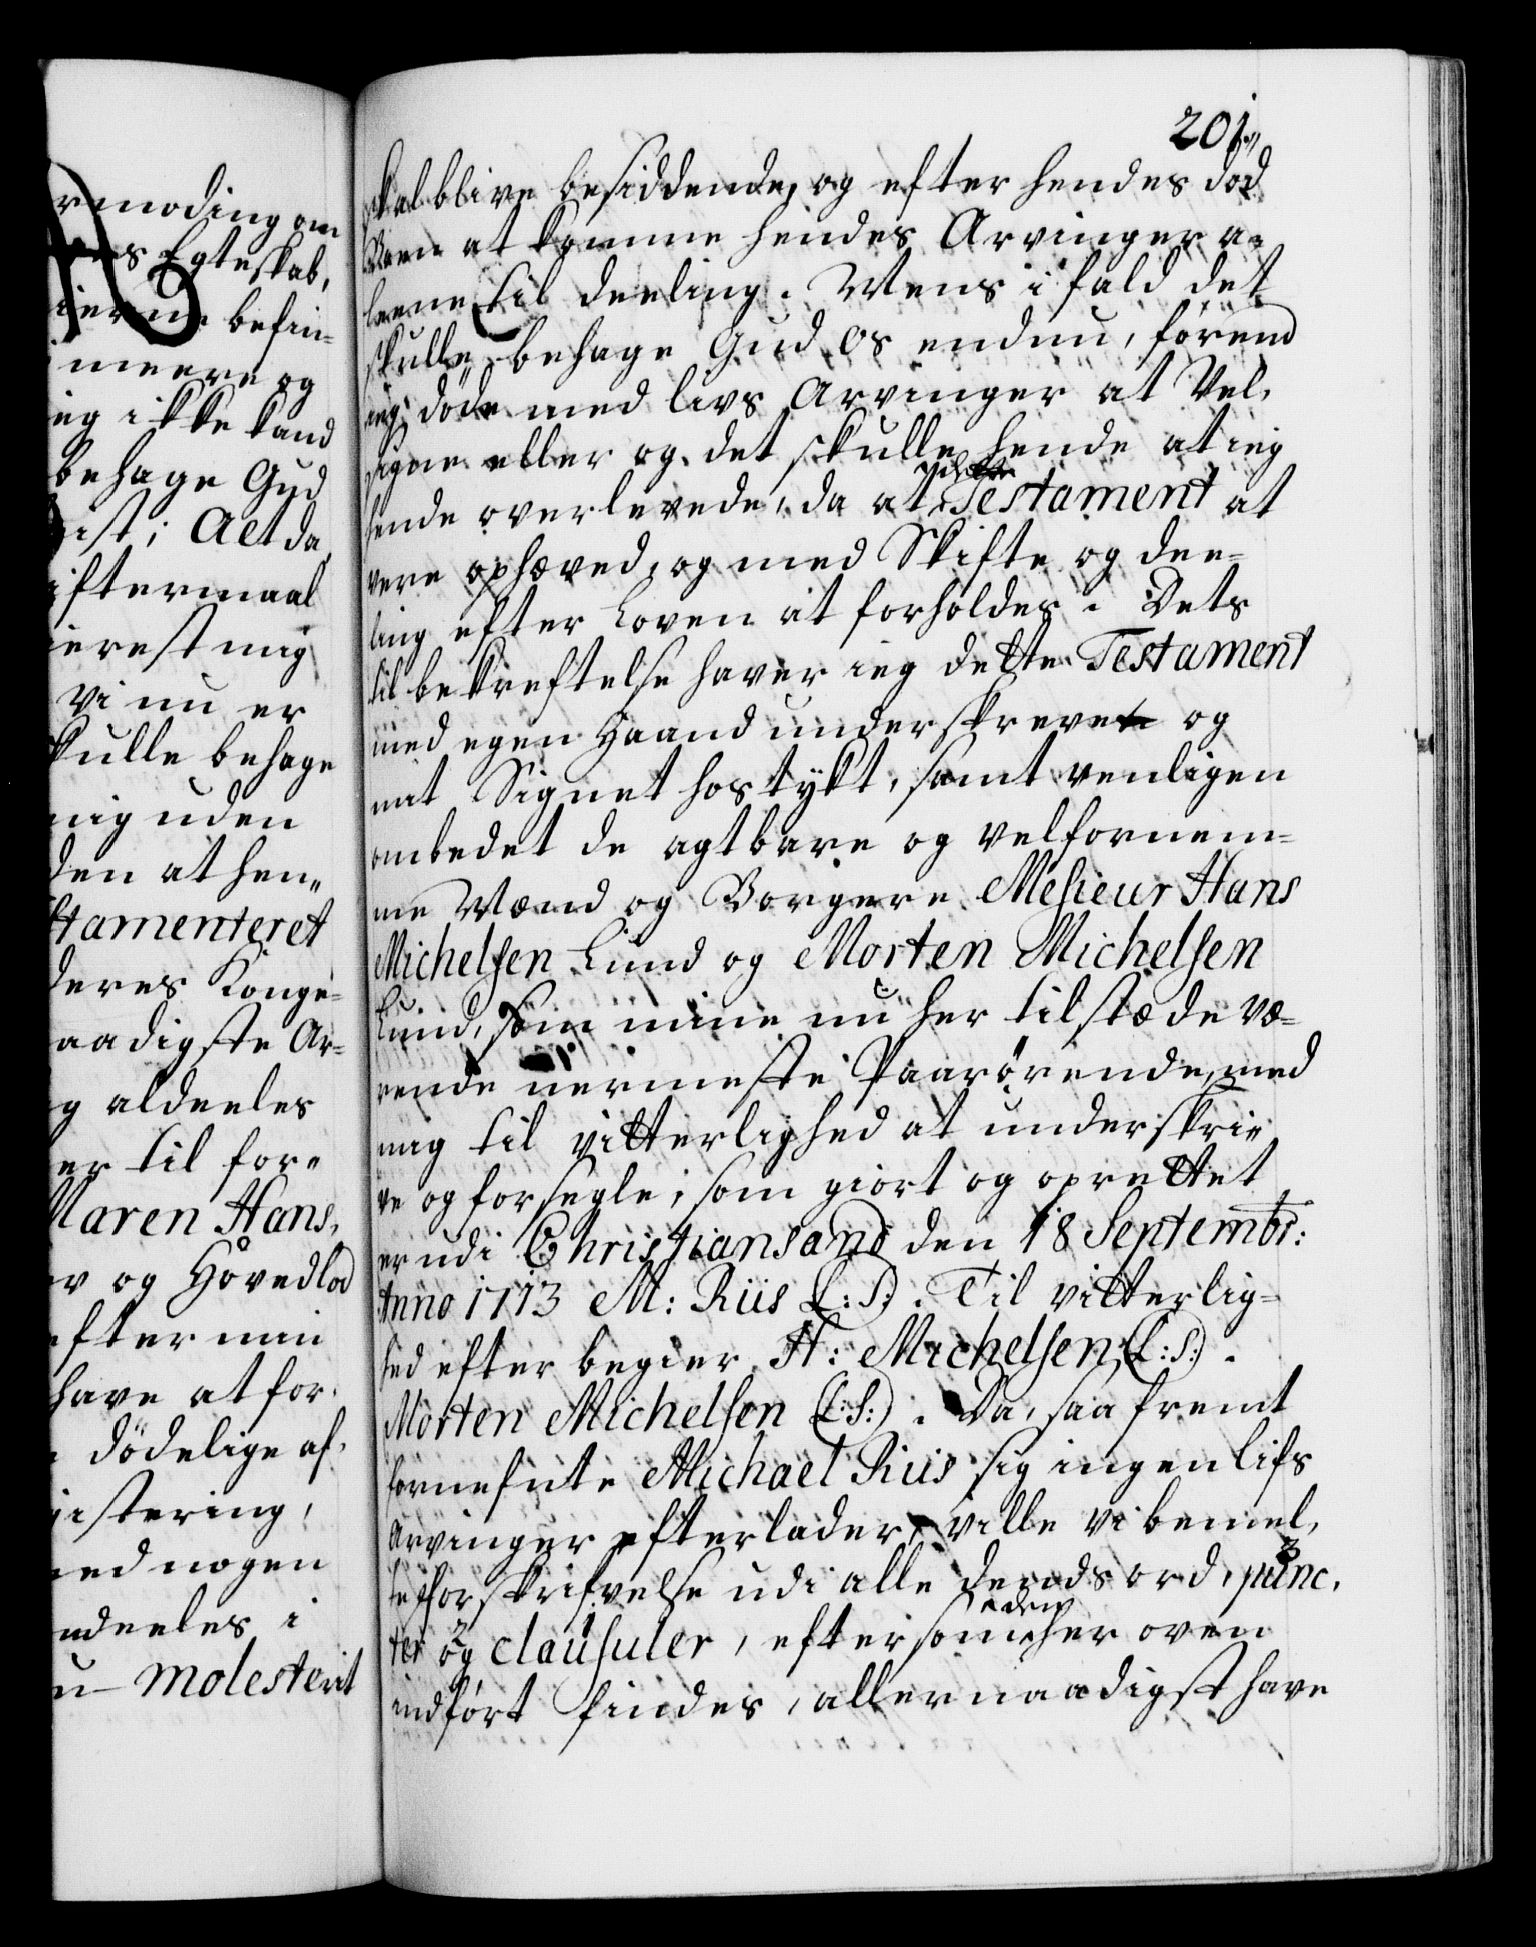 rmoding om
s Egteskab,
ierne befin-
meere og
ieg ikke kand
behage Gud
ist; Alt da
iftermaal
ierest mig
vi nu er
skulle behage
mig uden
den at hen„
stamenteret
deres Konge-
naadigste Ar-
og aldeeles
er til for„
Maren Hans,
v og Hovedlod
efter min
have at for-
dödelige af-
gistering,
med nogen
ndeeles i
molesterit
201.
skal blive besiddende, og efter hendes död
at komme hendes Arvinger a-
leene til deeling. Mens i fald det
skulle behage Gud os endnu, förend
ieg döde med livs Arvinger at Vel-
signe eller og det skulle hende at ieg
hende overlevede, da at dette Testament at
vere ophæved, og med Skifte og dee-
ling efter Loven at forholdes. Dets
til bekreftelse haver ieg dette Testament
med egen Haand underskrevet og
mit Signet hostykt, samt venligen
ombedet de agtbare og velfornem-
me Mænd og Borgere Mesieur Hans
Michelsen Lund og Morten Michelsen
Lund, som mine nu her tilstæde væ-
rende nermeste Paarörende, med
mig til vitterlighed at underskri-
ve og forsegle; som giort og oprettet
er udi Christiansand den 18 Septembr:
Anno 1713 M: Riis (L:S:). Til vitterlig-
hed efter begier H: Michelsen (L:S:).
Morten Michelsen (L:S:). Da, saa fremt
fornefnte Michael Riis sig ingen lifs
Arvinger efterlader, ville vi bemel,
te forskrifvelse udi alle dends ord, punc,
ter og clausuler, eftersom den her oven
indfört findes, allernaadigst have